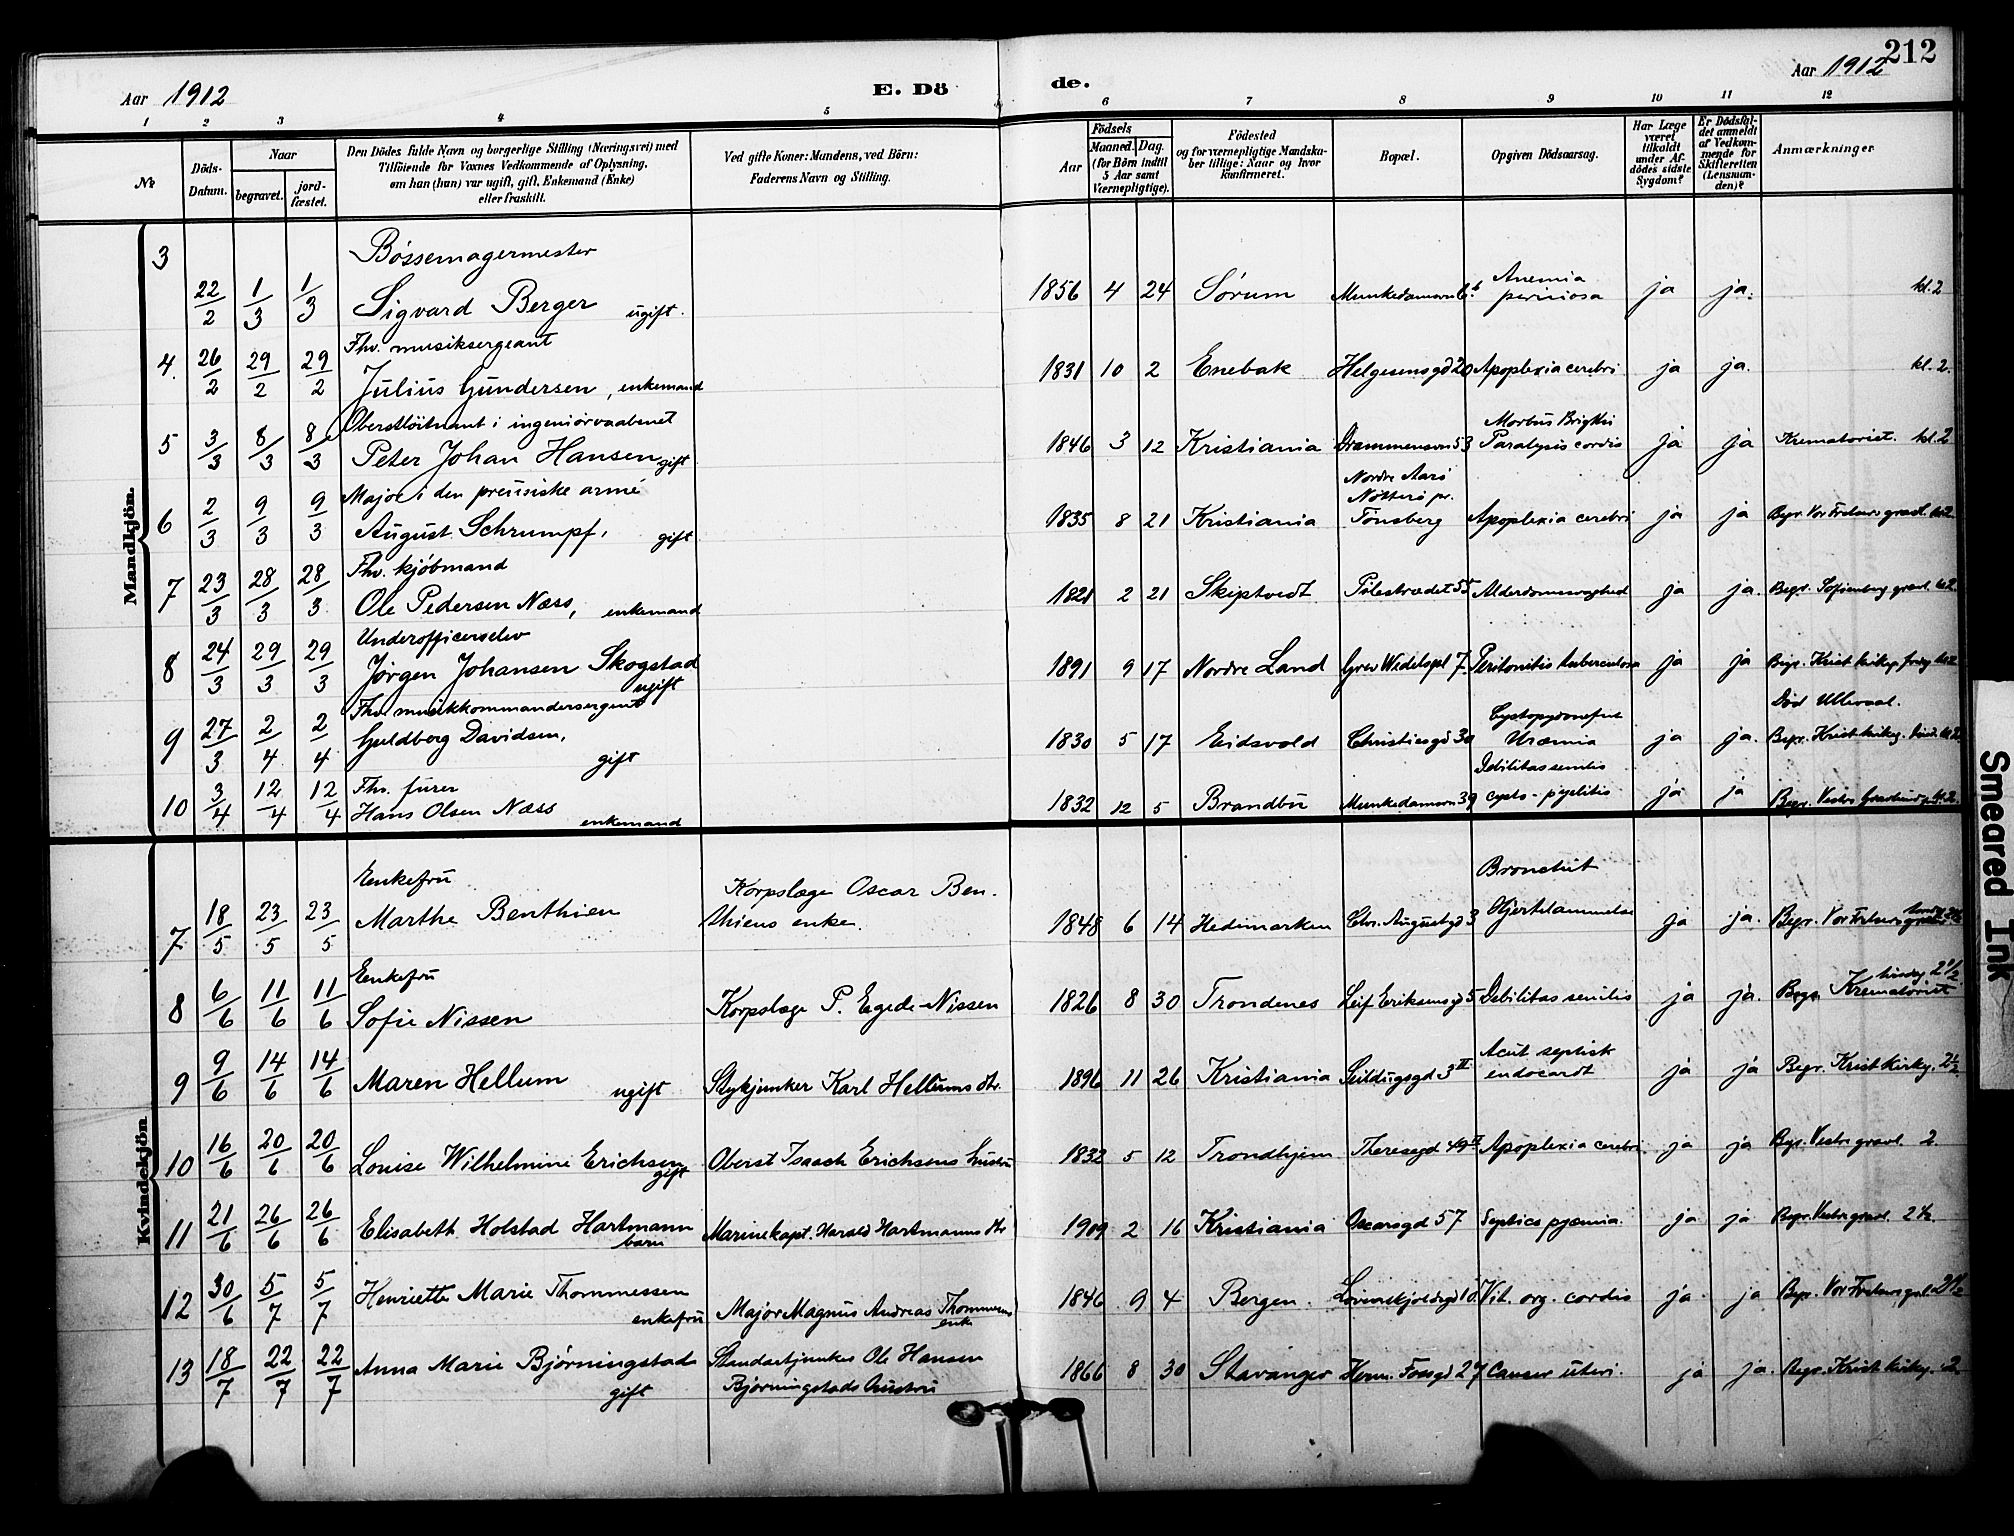 212
Aar 1912
E. Dö de.
Aar 1912
1 2 3 4 5 6 7 8 9 10 11 12
№
Döds-Datum.
Naar
begravet.
jord-fæstet.
Den Dödes fulde Navn og borgerlige Stilling (Næringsvei) med
Tilföiende for Voxnes Vedkommende af Oplysning,
om han (hun) var ugift, gift, Enkemand (Enke)
eller fraskilt.
Ved gifte Koner: Mandens, ved Börn:
Faderens Navn og Stilling.
Födsels
Aar
Maaned. Dag.
(for Börn indtil
5 Aar samt
Værnepligtige).
Födested
og for værnepligtige Mandska-
ber tillige: Naar og hvor
konfirmeret.
Bopæl.
Opgiven Dödsaarsag.
Har Læge
været
tilkaldt
under Af-
dödes sidste
Sygdom?
Er Dödsfal-
det anmeldt
af Vedkom-
mende for
Skifteretten
(Lensman-
den)?
Anmærkninger
Mandkjön.
3 Bøssemagermester
22/2 1/3 1/3 Sigvard Berger ugift. 1856 4 24 Sørum Anemia perniciosa ja ja. kl. 2
Fhv. musiksergeant
4. 26/2 29/2 29/2 Julius Gundersen, enkemand 1831 10 2 Enebak Helgesensgd 20 Apoplexia cerebri ja ja. kl. 2.
Oberstløitnant i ingeniørvaabenet
5 3/3 8/3 8/3 Peter Johan Hansen gift 1846 3 12 Kristiania Drammensvn 53 Morbus Brigthii Paralysis cordis ja ja Krematoriet. kl. 2
Major i den preusiske armé
6 2/3 9/3 9/3 August Schrumpf, gift 1835 8 21 Kristiania Nordre Aarø Nøtterø pr. Tønsberg Apoplexia cerebri ja ja Begr. Vor Frelsers gravl. kl. 2
Fhv. kjøbmand
7 23/3 28/3 28/3 Ole Pedersen Næss, enkemand 1821 2 21 Skiptvedt Pilestrædet 55 Alderdomssvaghed ja ja. Begr. Sofienberg gravl. kl. 2
Underofficerselev
8 24/3 29/3 29/3 Jørgen Johansen Skogstad ugift 1891 9 17 Nordre Land Grev Wedelspl 7. Peritonitis tuberculosa ja ja Begr. Krist kirkeg.
Fhv. musikkommandersergent
9 27/3 2/4 2/4 Guldborg Davidsen, gift 1830 5 17 Eidsvold Christiesgd 30 Uræmia ja ja. Død Ullevaal. Begr. Krist kirkeg.
10 3/4 12/4 12/4 Fhv. furer
Hans Olsen Næss enkemand 1832 12 5 Brandbu Munkedamsvn 39 Debilitas senilis cysto-pyelitis ja ja Begr. Vestre Gravlund kl. 2
Kvindekjön
Enkefru
7 18/5 23/5 23/5 Marthe Benthien Korpslæge Oscar Ben-
thiens enke. 1848 6 14 Hedemarken Chr. Augustsgd 3 Bronchit Hjertelammelse ja ja. Begr. Vor Frelsers
Enkefru
8 6/6 11/6 11/6 Sofie Nissen Korpslæge P. Egede-Nissen 1826 8 30 Trondenes Leif Eriksensgd 5 Debilitas senilis ja ja. Begr. Krematoriet 2 1/2
9 9/6 14/6 14/6 Maren Hellum ugift Stykjunker Karl Hellums dtr. 1896 11 26 Kristiania Seildugsgd 3 II Acut septisk endocardt ja ja Begr. Krist Kirkg. 2 1/2
10 16/6 20/6 20/6 Louise Wilhelmine Erichsen gift Oberst Isaach Erichsens hustru 1832 5 12 Trondhjem Theresegd 49 II Apoplexia cerebri. ja ja Begr. Vestre gravl. 2
11 21/6 26/6 26/6 Elisabeth Holstad Hartmann barn Marinekapt. Harald Hartmanns dtr 1909 2 16 Kristiania Oscarsgd 57 Septico pyæmia. ja ja Begr. Vestre gravl. 2 1/2.
12 30/6 5/7 5/7 Henriette Marie Thommessen enkefru Major Magnus Andreas Thommesens enke 1846 9 4 Bergen. Løvenskjoldsgd 10. Vit. org. cordis ja ja Begr. Vor Frelsers gravl. 2 1/2
13 18/7 22/7 22/7 Anna Marie Bjørningstad gift Standartjunker Ole Hansen
Bjørningstads hustru 1866 8 30 Stavanger Herm. Fossgd 27 Cancer uteri. ja ja. Begr. Krist kirkeg. 2
Smeared Ink